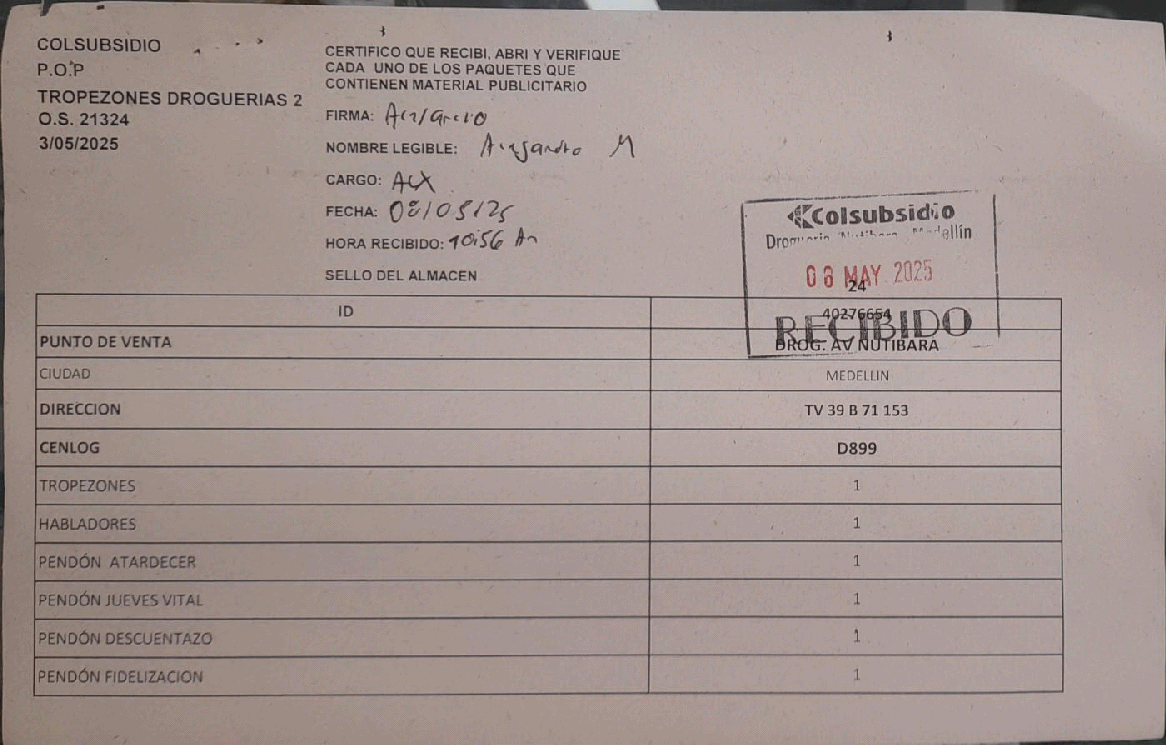 COLSUBSIDIO
P.O.P
TROPEZONES DROGUERIAS 2
O.S. 21324
3/05/2025
CERTIFICO QUE RECIBI, ABRI Y VERIFIQUE
CADA UNO DE LOS PAQUETES QUE
CONTIENEN MATERIAL PUBLICITARIO
FIRMA:
NOMBRE LEGIBLE: M
CARGO:
FECHA: 08/05/25
HORA RECIBIDO: 10:56 Am
SELLO DEL ALMACEN
Colsubsidio
Medellín
08 MAY 2025
RECIBIDO
24
ID 40276654
PUNTO DE VENTA DROG. AV NUTIBARA
CIUDAD MEDELLIN
DIRECCION TV 39 B 71 153
CENLOG D899
TROPEZONES 1
HABLADORES 1
PENDÓN ATARDECER 1
PENDÓN JUEVES VITAL 1
PENDÓN DESCUENTAZO 1
PENDÓN FIDELIZACION 1